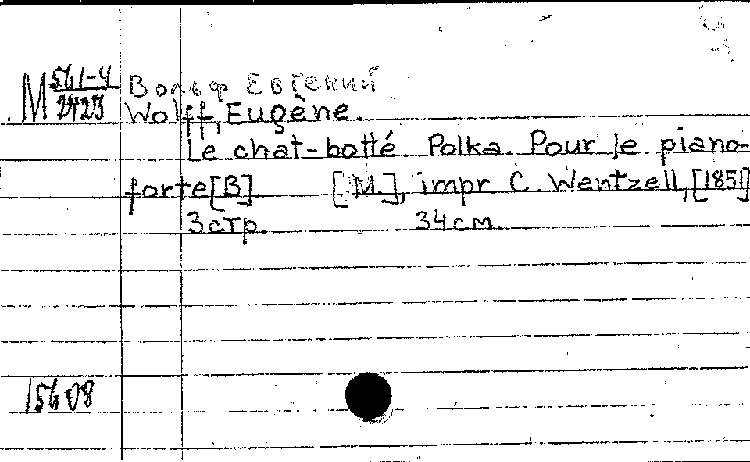 М 561-4/2423
Вольф Евгений
Wolff, Eugène.
Le chat-botté Polka. Pour le piano-
forte [B] [М.], impr C. Wentzell, [185]
3 стр. 34 см.
15608